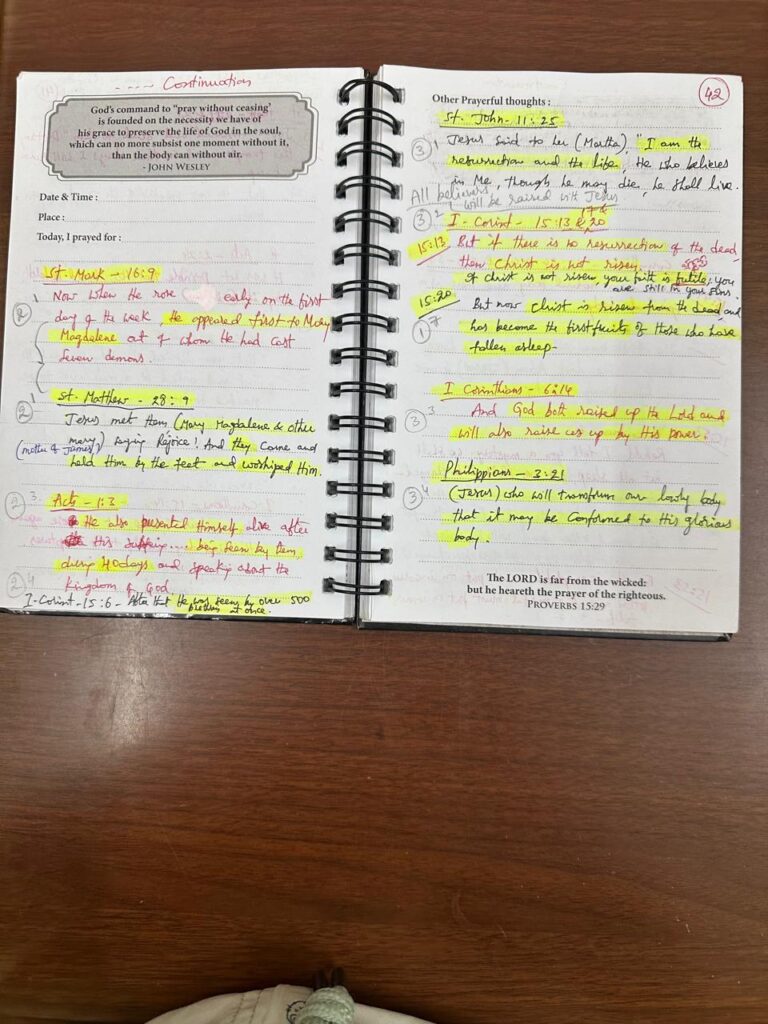 ---- Continuation
God's command to "pray without ceasing"
is founded on the necessity we have of
his grace to preserve the life of God in the soul,
which can no more subsist one moment without it,
than the body can without air.
- JOHN WESLEY
Date & Time :
Place :
Today, I prayed for :
St. Mark - 16:9
2 1 Now when He rose early on the first
day of the week, He appeared first to Mary
Magdalene out of whom He had cast
seven demons.
St. Matthew - 28:9
2 1 Jesus met them (Mary Magdalene & other
(mother of James) mary) saying Rejoice! And they came and
held Him by the feet and worshiped Him.
2 3. Acts - 1:3
He also presented Himself alive after
His suffering.... being seen by them
during 40 days and speaking about the
kingdom of God.
2 4
I-Corint-15:6 - After that He was seen by over 500
brethren at once.
42
Other Prayerful thoughts :
St. John - 11:25
3 1 Jesus said to her (Martha), "I am the
resurrection and the life, He who believes
in Me, though he may die, he shall live.
All believers
will be raised with Jesus
3 2 I - Corint - 15:13 17 & 20
15:13 But if there is no resurrection of the dead,
then Christ is not risen.
If christ is not risen, your faith is futile; you
are still in your sins.
15:20 But now Christ is risen from the dead and
1 7 has become the firstfruits of those who have
fallen asleep.
I Corinthians - 6:14
3 3 And God both raised up the Lord and
will also raise us up by His power.
Philippians - 3:21
3 4 (Jesus) who will transform our lowly body
that it may be conformed to His glorious
body.
The LORD is far from the wicked:
but he heareth the prayer of the righteous.
PROVERBS 15:29